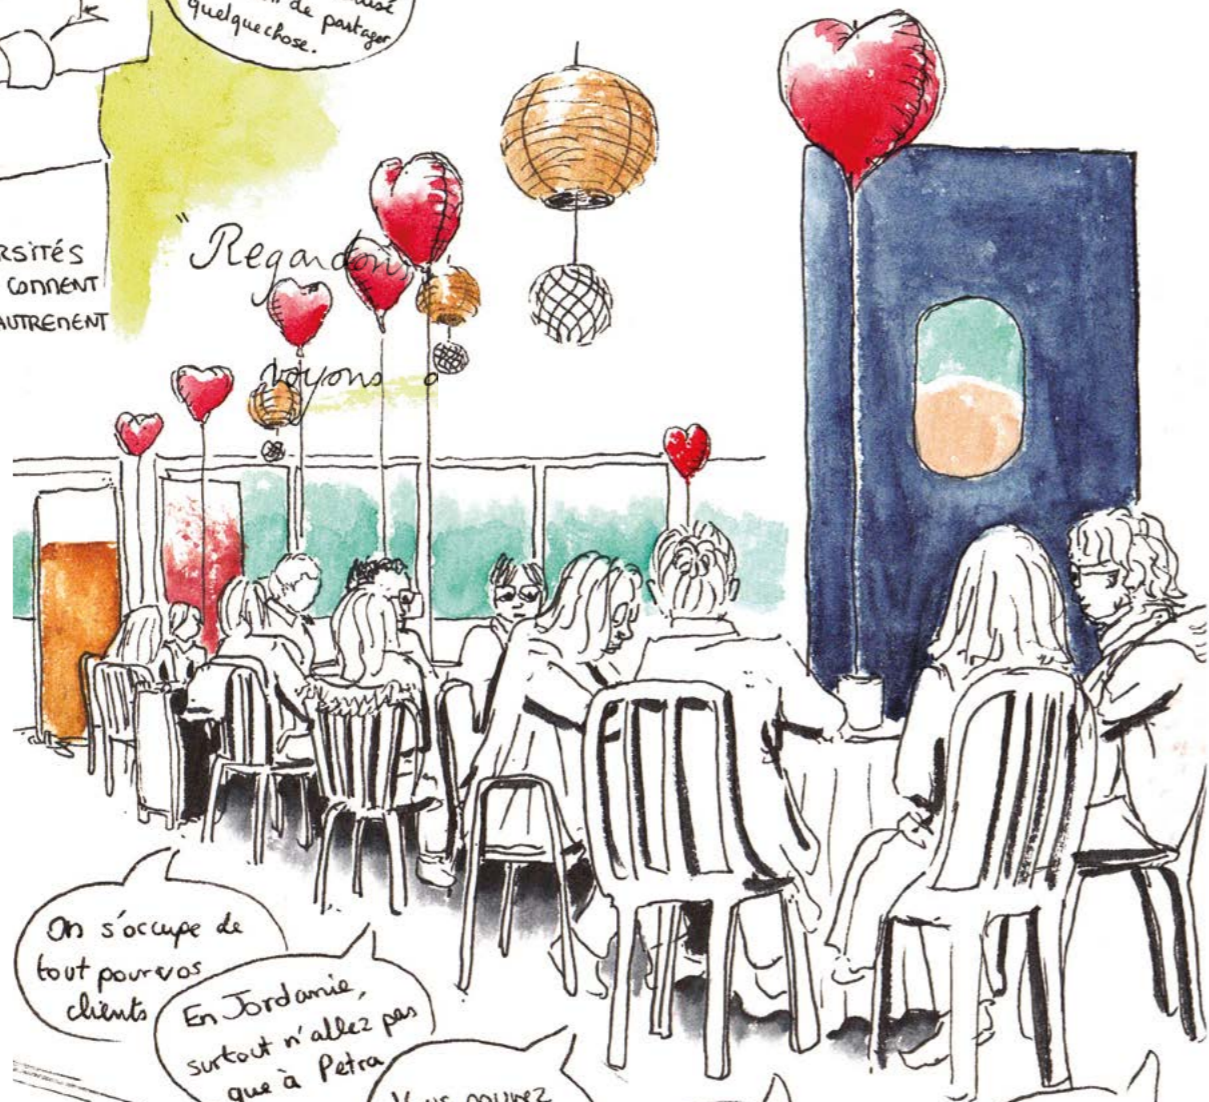 de partager
quelquechose.
RSITÉS
CONNENT
AUTREMENT
"Regardons
voyons o
On s'occupe de
tout pour vos
clients
En Jordanie,
surtout n'allez pas
que à Petra
Vous pouvez